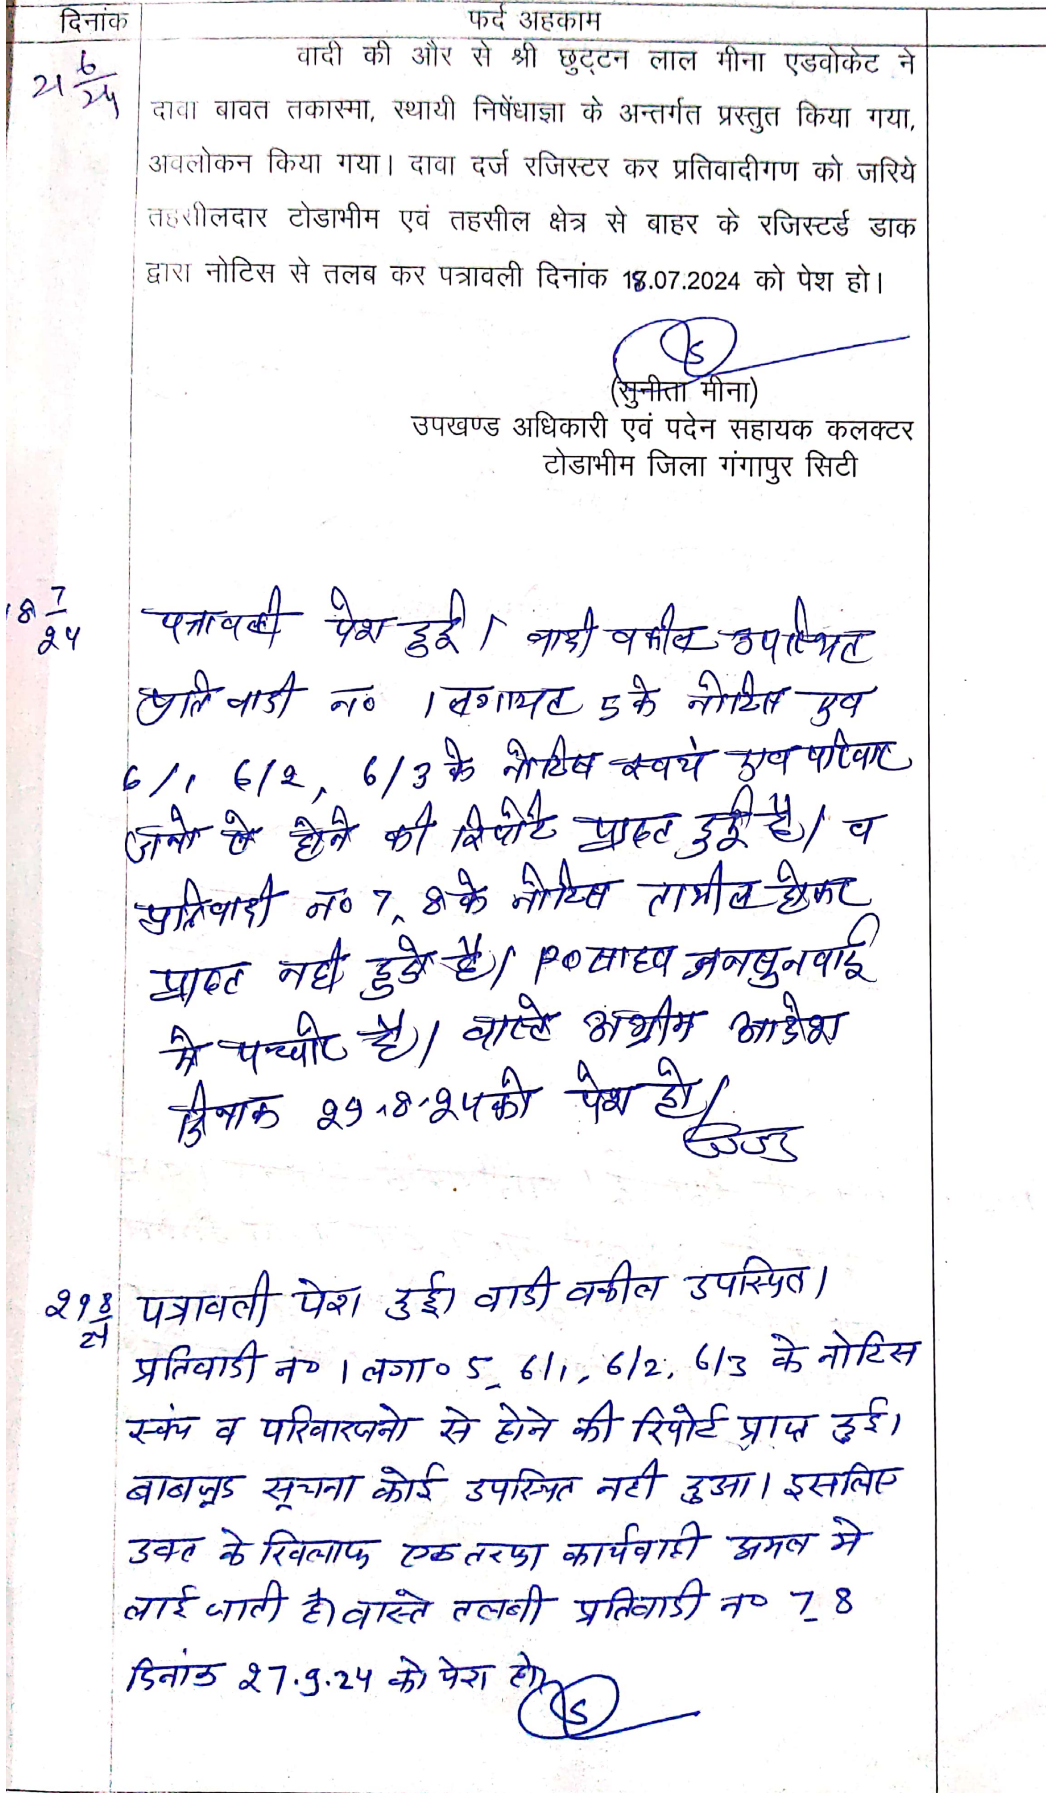 दिनांक
फर्द अहकाम
21 6/24
वादी की और से श्री छुट्टन लाल मीना एडवोकेट ने
दावा बावत तकास्मा, स्थायी निषेंधाज्ञा के अन्तर्गत प्रस्तुत किया गया,
अवलोकन किया गया। दावा दर्ज रजिस्टर कर प्रतिवादीगण को जरिये
तहसीलदार टोडाभीम एवं तहसील क्षेत्र से बाहर के रजिस्टर्ड डाक
द्वारा नोटिस से तलब कर पत्रावली दिनांक 18.07.2024 को पेश हो।
(सुनीता मीना)
उपखण्ड अधिकारी एवं पदेन सहायक कलक्टर
टोडाभीम जिला गंगापुर सिटी
18 7/24
पत्रावली पेश हुई। वादी वकील उपस्थित
प्रतिवादी न० 1 लगायत 5 के नोटिस एव
6/1, 6/2, 6/3 के नोटिस स्वयं एव परिवार
जनो से होने की रिपोर्ट प्राप्त हुई है। व
प्रतिवादी न० 7, 8 के नोटिस तामील होकर
प्राप्त नही हुऐ है। PO साहब जनसुनवाई
मे है। वास्ते अग्रीम आदेश
दिनाक 29.8.24 को पेश हो।
29 8/24
पत्रावली पेश हुई। वादी वकील उपस्थित।
प्रतिवादी न० 1 लगा० 5, 6/1, 6/2, 6/3 के नोटिस
स्वयं व परिवारजनो से होने की रिपोर्ट प्राप्त हुई।
बाबजूद सूचना कोई उपस्थित नही हुआ। इसलिए
उक्त के खिलाफ एक तरफा कार्यवाही अमल मे
लाई जाती है। वास्ते तलबी प्रतिवादी न० 7, 8
दिनांक 27.9.24 को पेश हो।